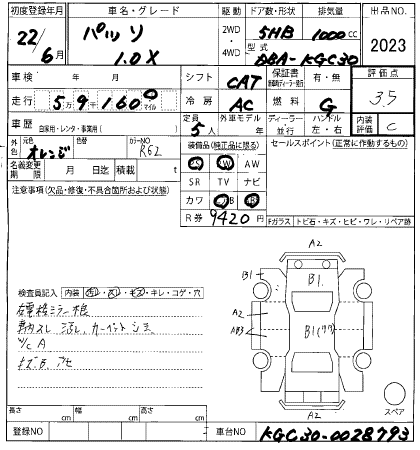 初度登録年月 車名・グレード 駆動 ドア数・形状 排気量 出品NO.
22/6月 パッソ 1.0X 2WD・4WD 5HB 1000cc 2023
型式 DBA-KGC30
車検 年 月 シフト CAT 保証書 有・無 評価点
走行 5,9,160 マイル 冷房 AC 燃料 G 3.5
車歴 自家用・レンタ・事業用( ) 定員 5人 外車モデル 年 ディーラー・並行 ハンドル 左・右 内装評価 C
外色 元色 オレンジ 色替 カラーNO R62 装備品(純正品に限る) セールスポイント(正常に動作するもの)
名義変更期限 月 日迄 積載 t SR TV ナビ
AW
注意事項(欠品・修復・不具合箇所および状態) カワ
R券 9420円
Fガラス トビ石・キズ・ヒビ・ワレ・リペア跡
A2
B1 B1
検査員記入 内装 キレ・コゲ・穴
A2
AB3 B1(ワク)
右電格ミラー
内スレ 汚れ、カーペットシミ
A
キズ、B、アセ
A2
スペア
長さ cm 幅 cm 高さ cm
登録NO 車台NO KGC30-0028793